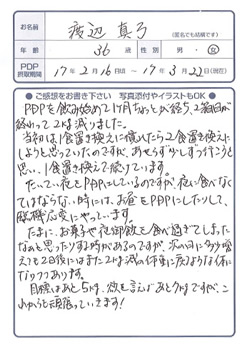 お名前 渡辺 真弓 (匿名でも結構です)
年齢 36 歳 性別 男・女
PDP摂取期間 17年2月16日 〜 17年3月22日(現在)
●ご感想をお書き下さい 写真添付やイラストもOK●
PDPを飲み始めて1ヶ月ちょっとが経ち、2箱目が
終わって2kg減りました。
当初は1食置き換えに慣れたら2食置き換えに
しようと思っていたのですが、あせらず少しずつ行こうと
思い、1食置き換えで続けています。
だいたい夜をPDPにしているのですが、夜に食べなく
てはならない時には、お昼をPDPにしたりして、
臨機応変にやっています。
たまに、お菓子や夜御飯を食べ過ぎてしまった
なぁと思ったりする時があるのですが、次の日に多少増
えても2日後にはまた2kg減の体重に戻るような体に
なりつつあります。
目標はあと5kg、欲を言えばあと9kgですが、こ
れからも頑張っていきます!